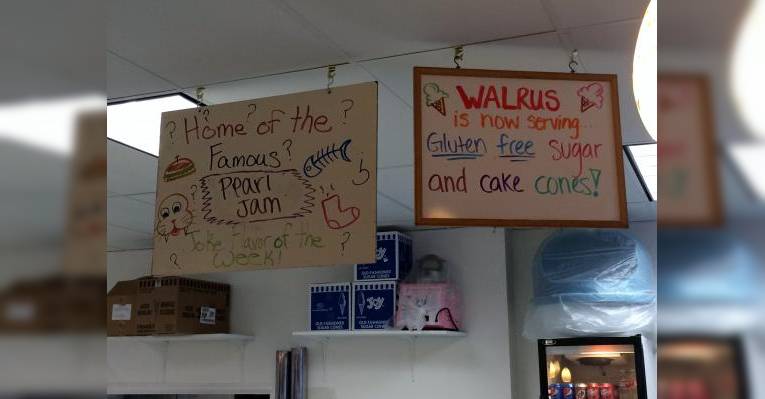 ? Home of the ?
Famous ?
Pearl
Jam
Joke Flavor of the
Week!
?
?
WALRUS
is now serving...
Gluten free sugar
and cake cones!
JOY
OLD FASHIONED
SUGAR CONES
JOY
OLD FASHIONED
SUGAR CONES
OLD FASHIONED
SUGAR CONES